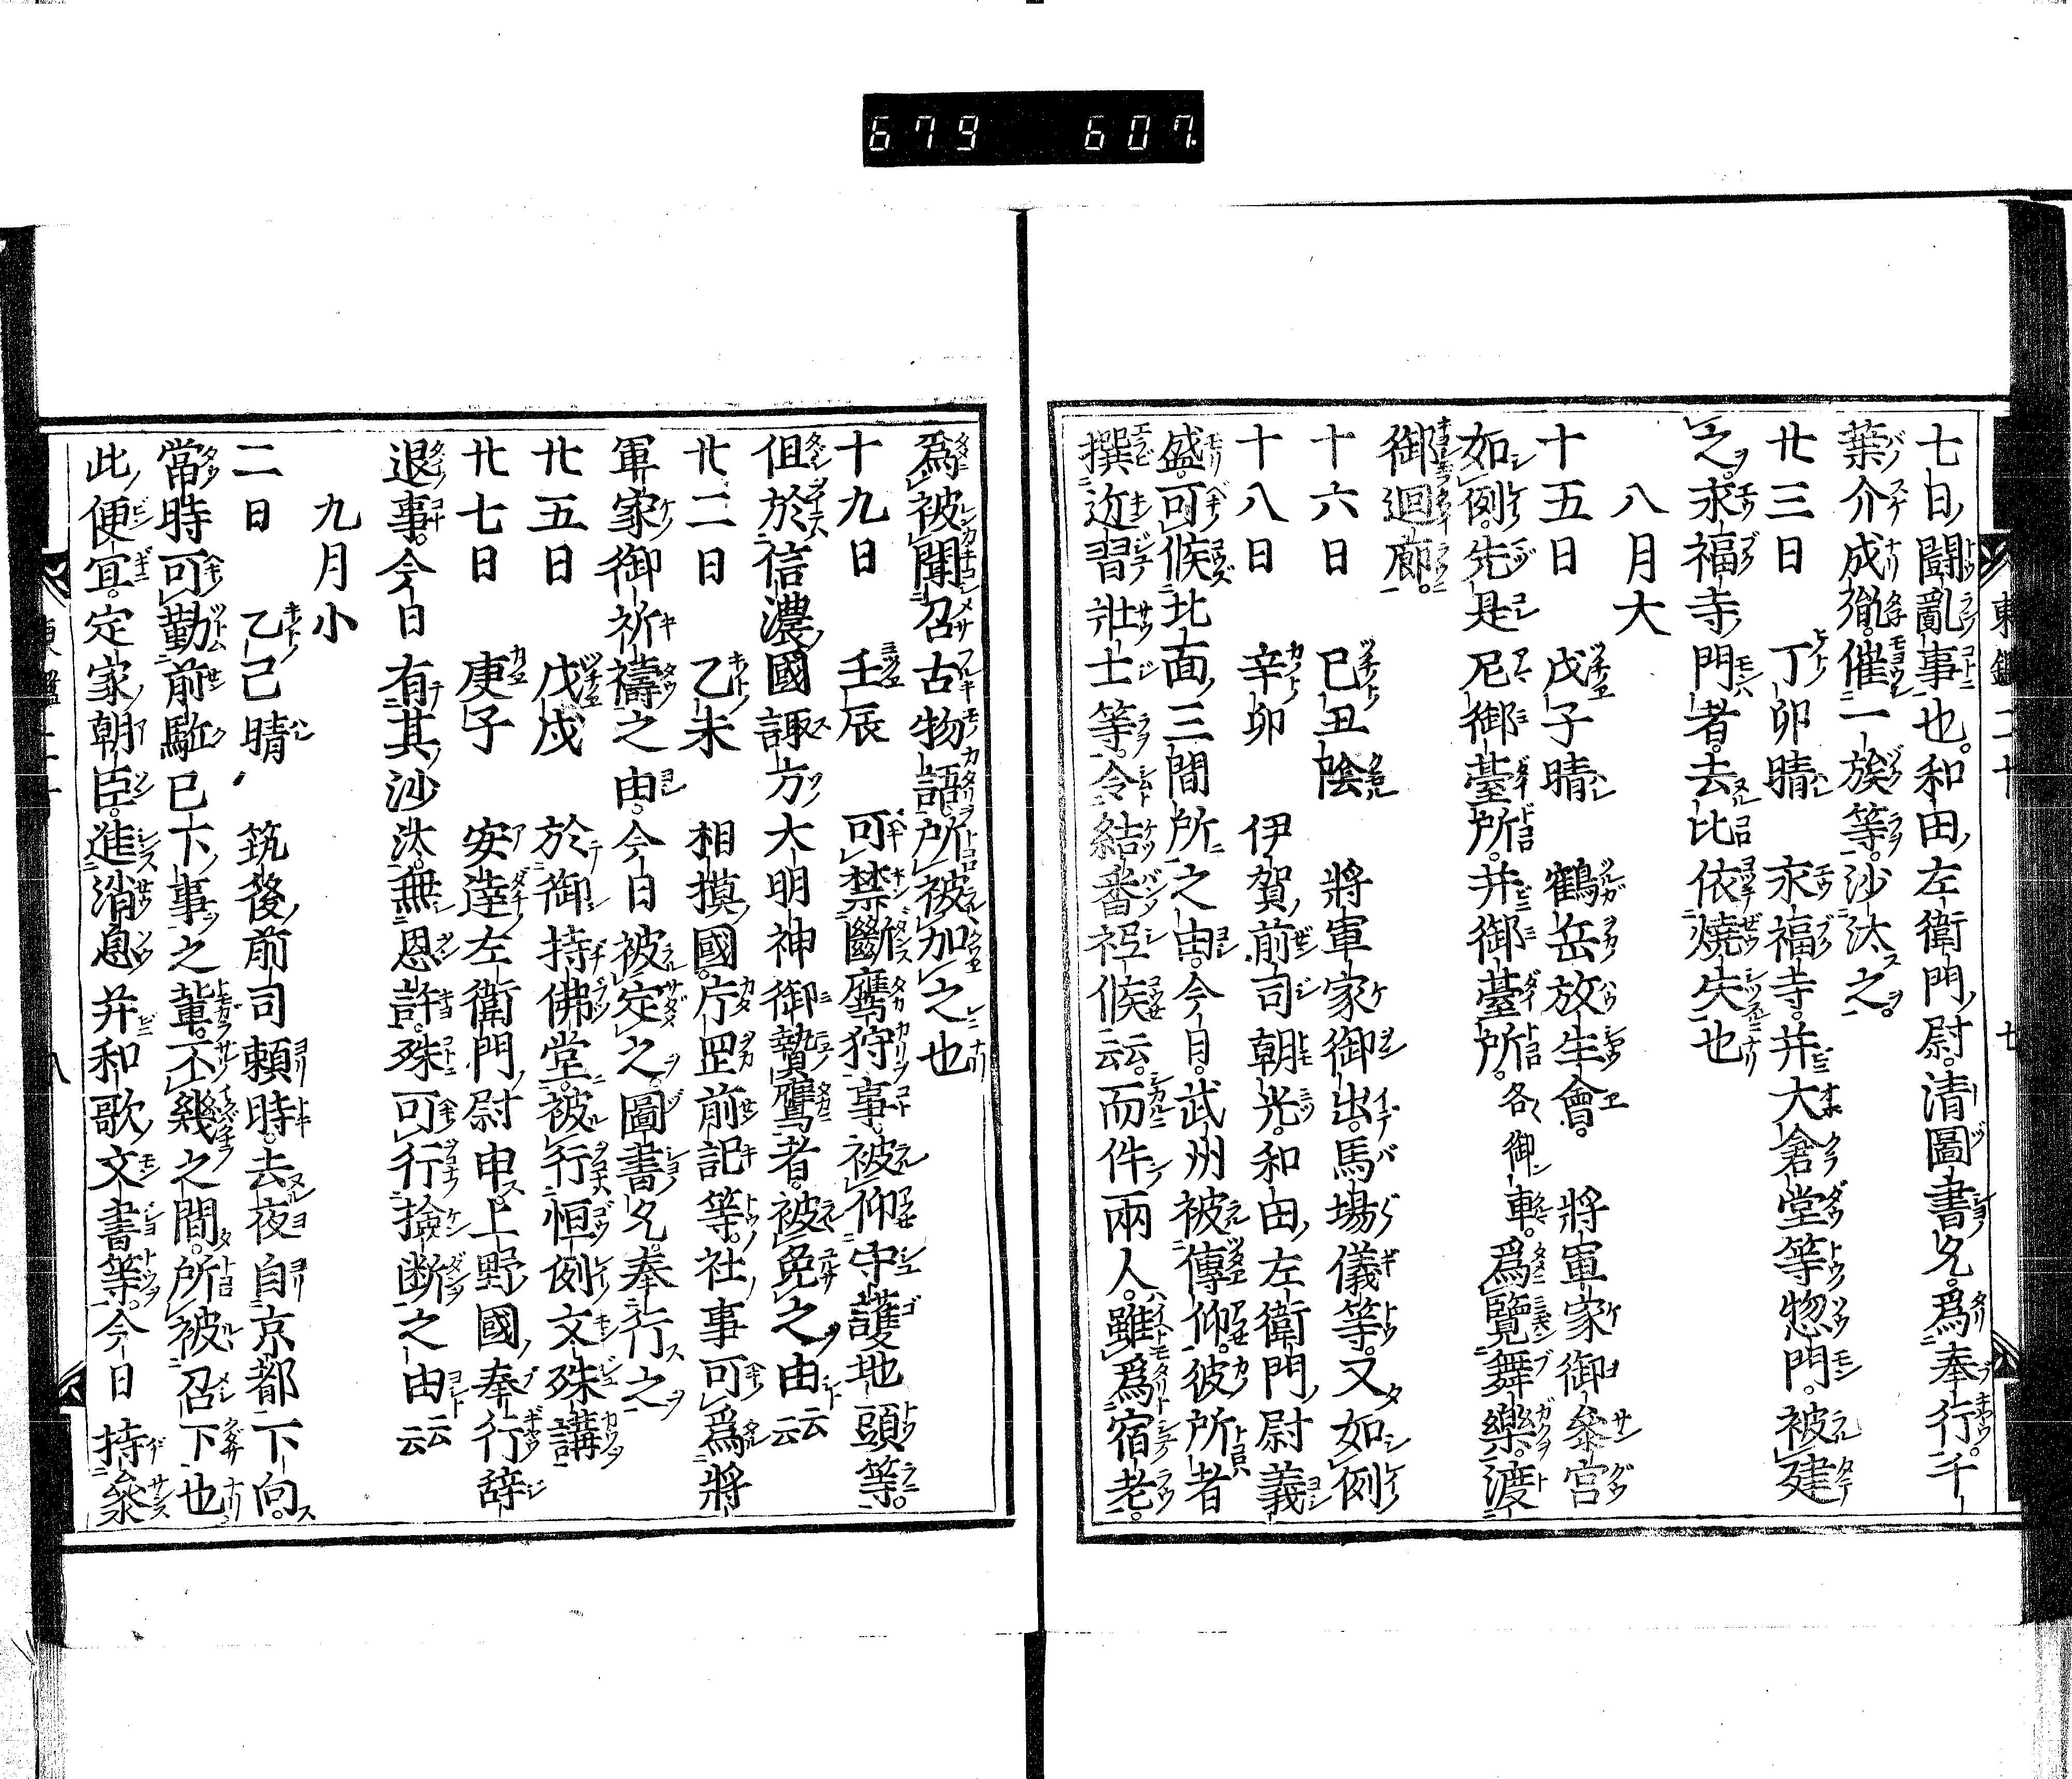 679 607
七日鬪亂事也。和田左衛門尉。清圖書允。爲奉行。千
葉介成胤。催一族等。沙汰之。
廿三日 丁卯晴 永福寺。并大倉堂等惣門。被建
之。永福寺門者。去比依燒失也
八月大
十五日 戊子晴 鶴岳放生會。 將軍家御參宮
如例。先是尼御臺所。并御臺所。各御車。爲覽舞樂。渡
御廻廊。
十六日 己丑陰 將軍家御出。馬場儀等。又如例
十八日 辛卯 伊賀前司朝光。和田左衛門尉義
盛。可候北面三間所之由。今日。武州被傳仰。彼所者
撰近習壯士等。令結番祗候云云。而件兩人。雖爲宿老。
爲被聞召古物語。所被加之也
十九日 壬辰 可禁斷鷹狩事。被仰守護地頭等。
但於信濃國諏方大明神御贄鷹者。被免之由云云
廿二日 乙未 相摸國。庁罡前記等。社事可爲將
軍家御祈禱之由。今日被定之。圖書允。奉行之
廿五日 戊戌 於御持佛堂。被行恒例文殊講
廿七日 庚子 安達左衛門尉申上野國奉行辞
退事。今日有其沙汰。無恩許。殊可行撿断之由云云
九月小
二日 乙巳晴 筑後前司頼時。去夜自京都下向。
當時可勤前駈已下事之輩。不幾之間。所被召下也
此便宜。定家朝臣。進消息并和歌文書等。今日持參
東鑑二十 七
八